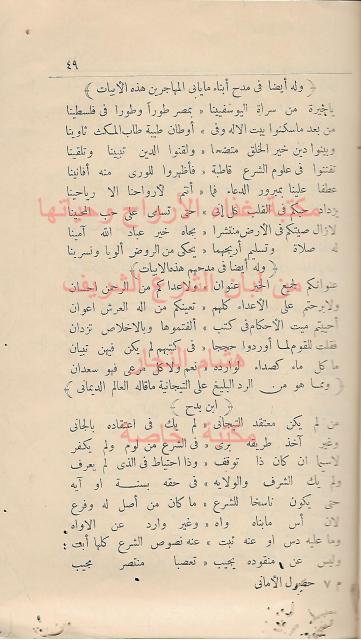 ٤٩
﴿ وله أيضا فى مدح أبناء مايابى المهاجرين هذه الأبيات ﴾
ياخيرة من سراة اليوسفيينا * بمصر طوراً وطورا فى فلسطينا
من بعد ماسكنوا بيت الاله وفى * أوطان طيبة طاب المكث ثاوينا
وبينوا دين خير الخلق متضحا * ولقنوا الدين تبيينا وتلقينا
تفننوا فى علوم الشرع قاطبة * فأظهروا للورى منه أفانينا
عطفا علينا بمبرور الدعاء فما * أنتم لارواحنا الا رياحينا
يزداد حبكم فى القلب كل * حتى تسامى على حب المحبينا
لازال صيتكم فى الأرض منتشرا * بجاه خير عباد الله آمينا
له صلاة وتسليم أريجهما * يحكى من الروض ألويا ونسرينا
﴿ وله أيضا فى مدحهم هذه الابيات ﴾
عنوانكم لجميع الخير عنوان * ولاعداكم من الرحمن احسان
ولابرحتم على الأعداء كلهم * تعينكم من اله العرش اعوان
أحييتم ميت الأحكام فى كتب * ألفتموها وبالاخلاص تزدان
فقلت للقوم لما أوردوا حججا * فى كتبهم لم يكن فيهن تبيان
ما كل ماء كصداء لوارده * نعم ولا كل مرعى فهو سعدان
﴿ ومما هو من الرد البليغ على التيجانية ماقاله العالم الديمانى ﴾
﴿ ابن بدح ﴾
من لم يكن معتقد التيجانى * لم يك فى اعتقاده بالجانى
وغير آخذ طريقه برى * فى الشرع من لوم ولم يكفر
لاسيما ان كان ذا توقف * وذا احتياط فى الذى لم يعرف
ولم يك الشرف والولايه * فى حقه بسنة او آيه
حتى يكون ناسخا للشرع * ما كان من أصل له وفرع
لان أس مابناه واه * وغير وارد عن الاواه
وما عليه دس او عنه ثبت * عنه نصوص الشرع كلها أبت
وليس عن منقوده يجيب * تعصبا منتصر مجيب
م ٧ حصول الأمانى
مكتبة غلق الأرواح وحياتها
من بيان الشرع الشريف
هشام النجار
مكتبة خاصة